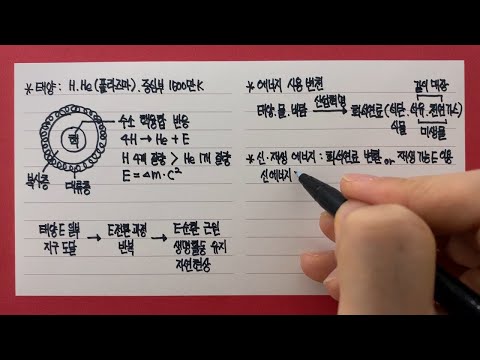 * 태양 : H.He (플라즈마). 중심부 1600만K
핵
복사층
대류층
수소 핵융합 반응
4H → He + E
H 4개 질량 > He 1개 질량
E = Δm·C²
태양E 일부 → E전환 과정 → E순환 근원
지구 도달 반복 생명활동 유지
자연현상
* 에너지 사용 변천
깊이 매장
태양.물.바람 산업혁명 → 화석연료 (석탄.석유.천연가스)
식물 미생물
* 신·재생 에너지 : 화석연료 변환 or 재생 가능E 이용
신에너지 :